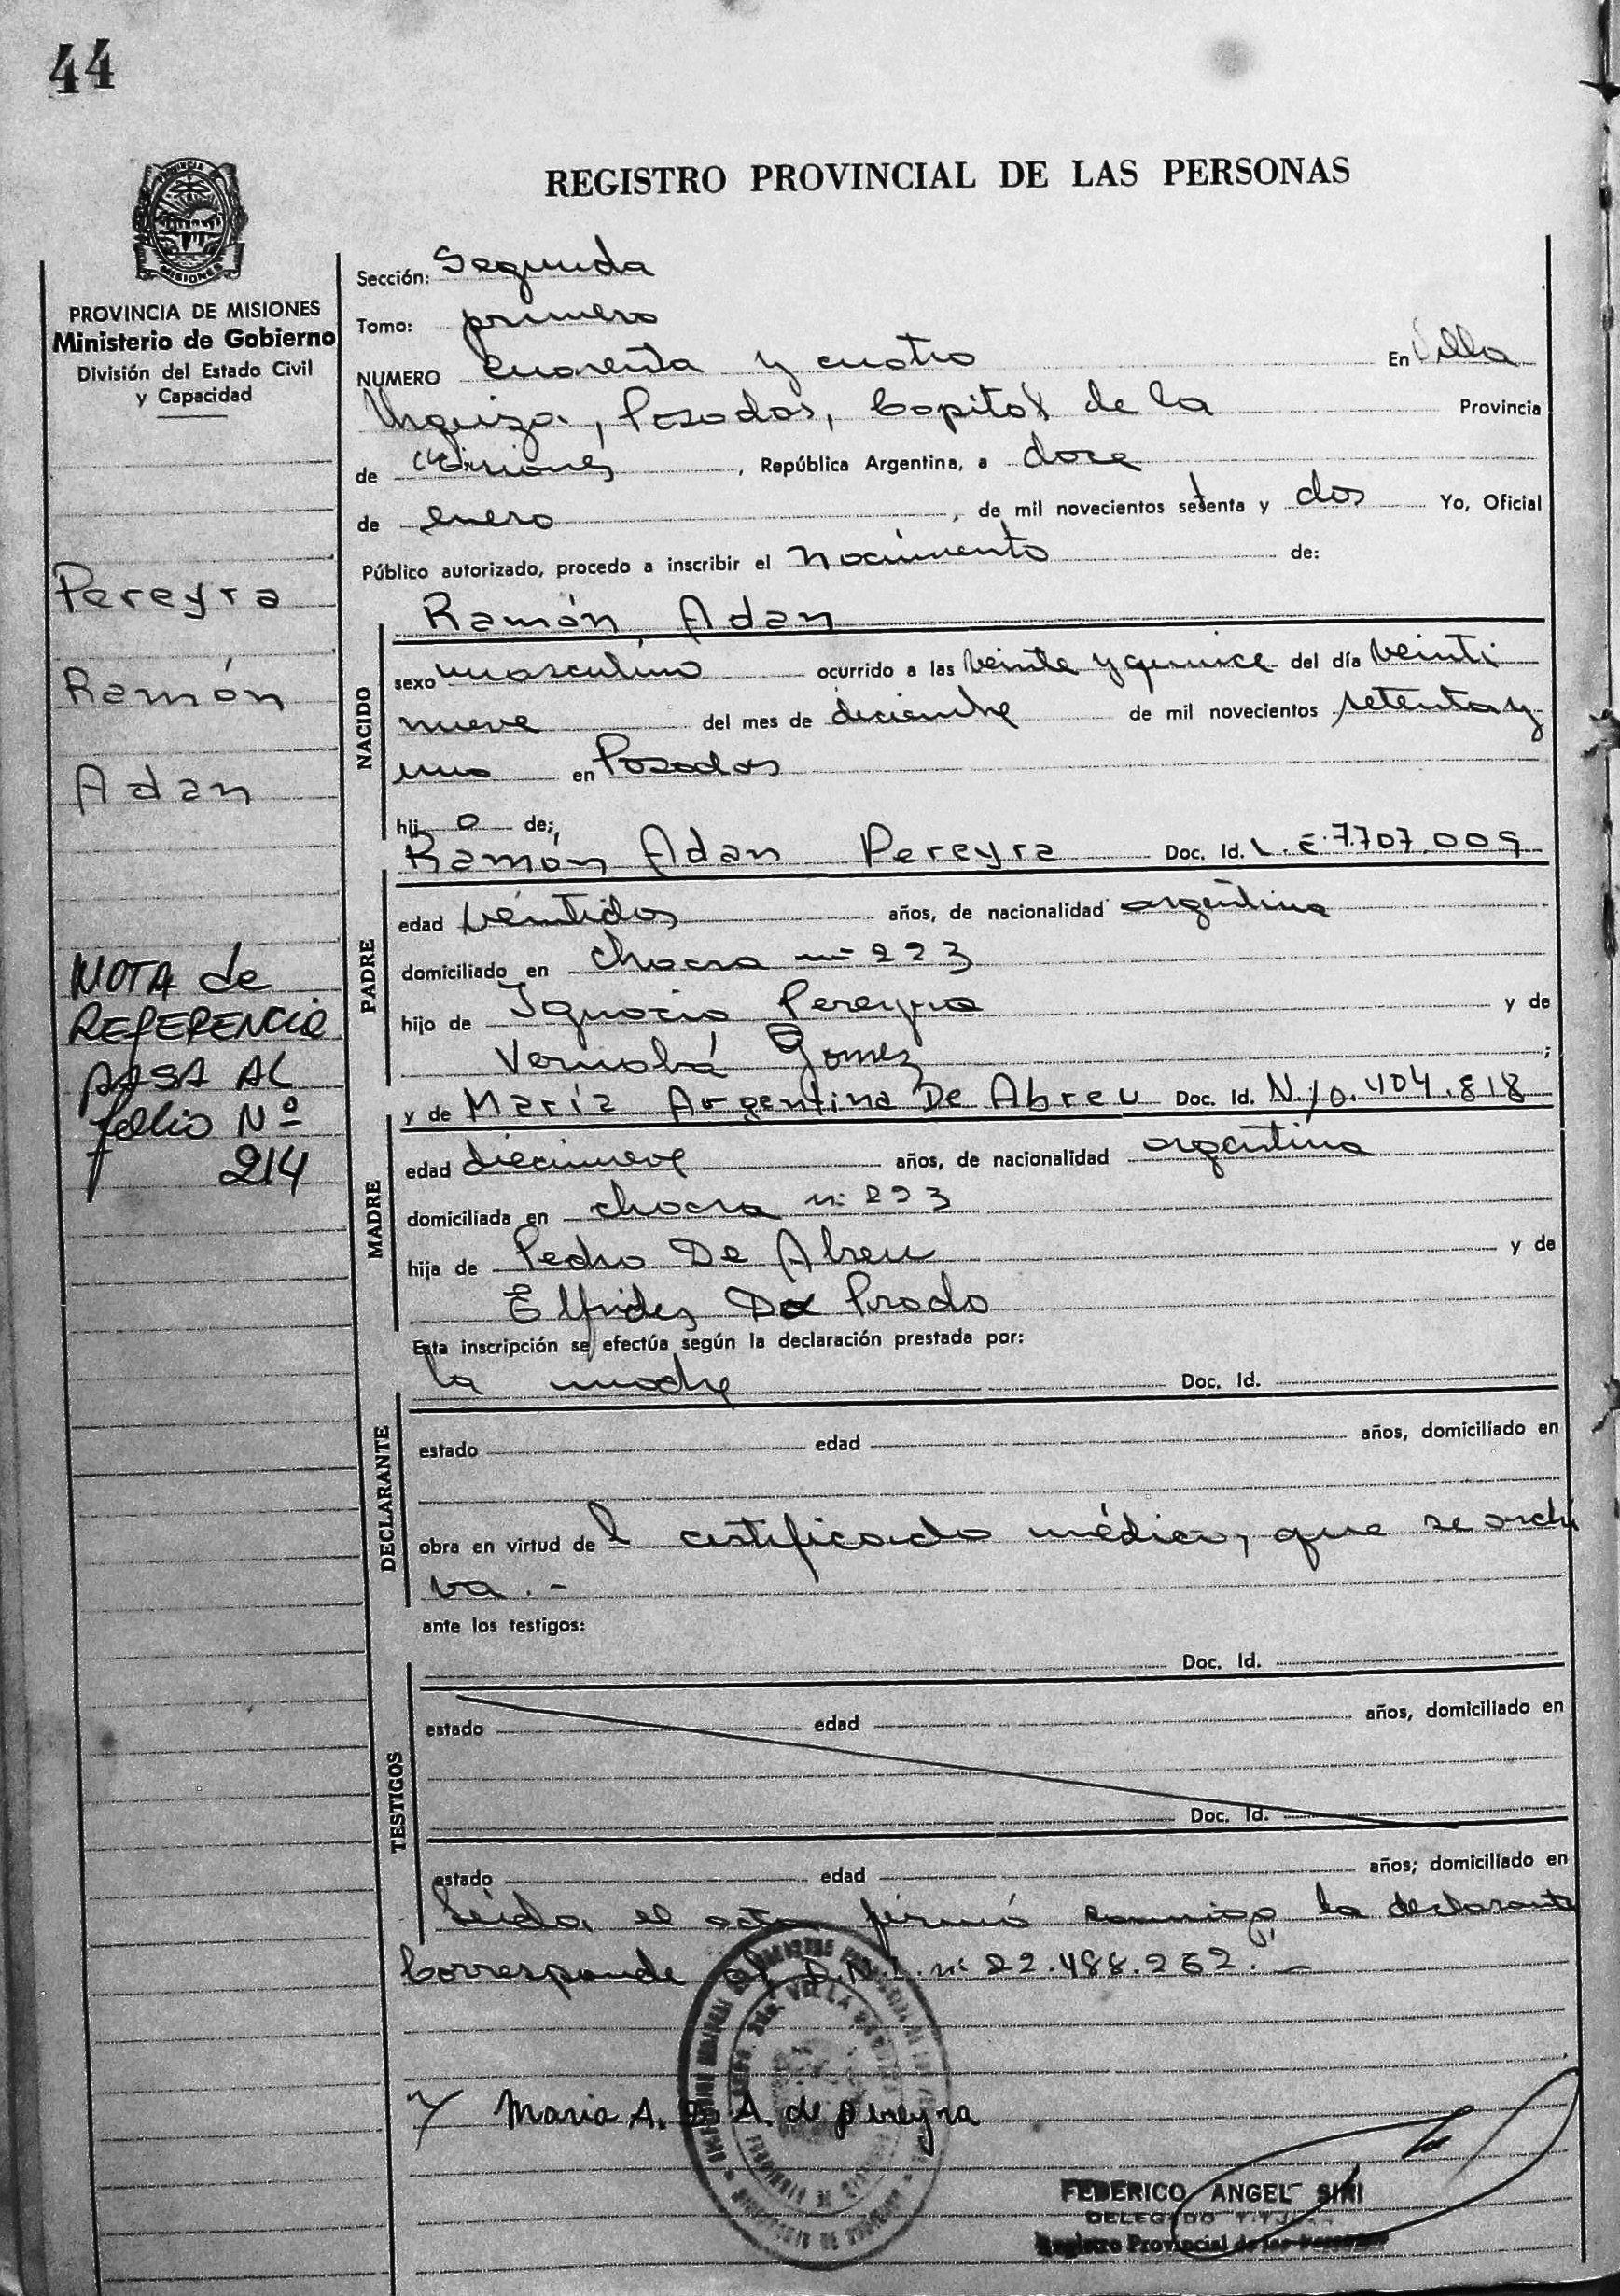 44
REGISTRO PROVINCIAL DE LAS PERSONAS
PROVINCIA DE
MISIONES
PROVINCIA DE MISIONES
Ministerio de Gobierno
División del Estado Civil
y Capacidad
Pereyra
Ramón
Adan
NOTA de
REFERENCIA
PASA AL
folio Nº
214
Sección: Segunda
Tomo: primero
NUMERO Cuarenta y cuatro En Villa
Urquiza, Posadas, Capital de la Provincia
de Misiones, República Argentina, a doce
de enero, de mil novecientos setenta y dos Yo, Oficial
Público autorizado, procedo a inscribir el Nacimiento de:
Ramón, Adan
NACIDO
sexo masculino ocurrido a las veinte y quince del día veinti
nueve del mes de diciembre de mil novecientos setenta y
uno en Posadas
hij o de:
Ramón Adan Pereyra Doc. Id. L.E 7.707.009
PADRE
edad veintidos años, de nacionalidad argentina
domiciliado en chacra nº 223
hijo de Ignacio Pereyra y de
Gomez;
y de María Argentina De Abreu Doc. Id. N/0.404.818
MADRE
edad diecinueve años, de nacionalidad argentina
domiciliada en chacra nº 223
hija de Pedro De Abreu y de
Elfrides Da Prado
Esta inscripción se efectúa según la declaración prestada por:
la madre Doc. Id.
DECLARANTE
estado edad años, domiciliado en
obra en virtud de l certificado médico, que se archi
va.-
ante los testigos:
Doc. Id.
TESTIGOS
estado edad años, domiciliado en
Doc. Id.
estado edad años; domiciliado en
Leída el acta firmó conmigo la declarante
Corresponde al D.N.I. nº 22.488.262.-
Maria A. D. A. de pereyra
FEDERICO ANGEL SIRI
DELEGADO TITULAR
Registro Provincial de las Personas